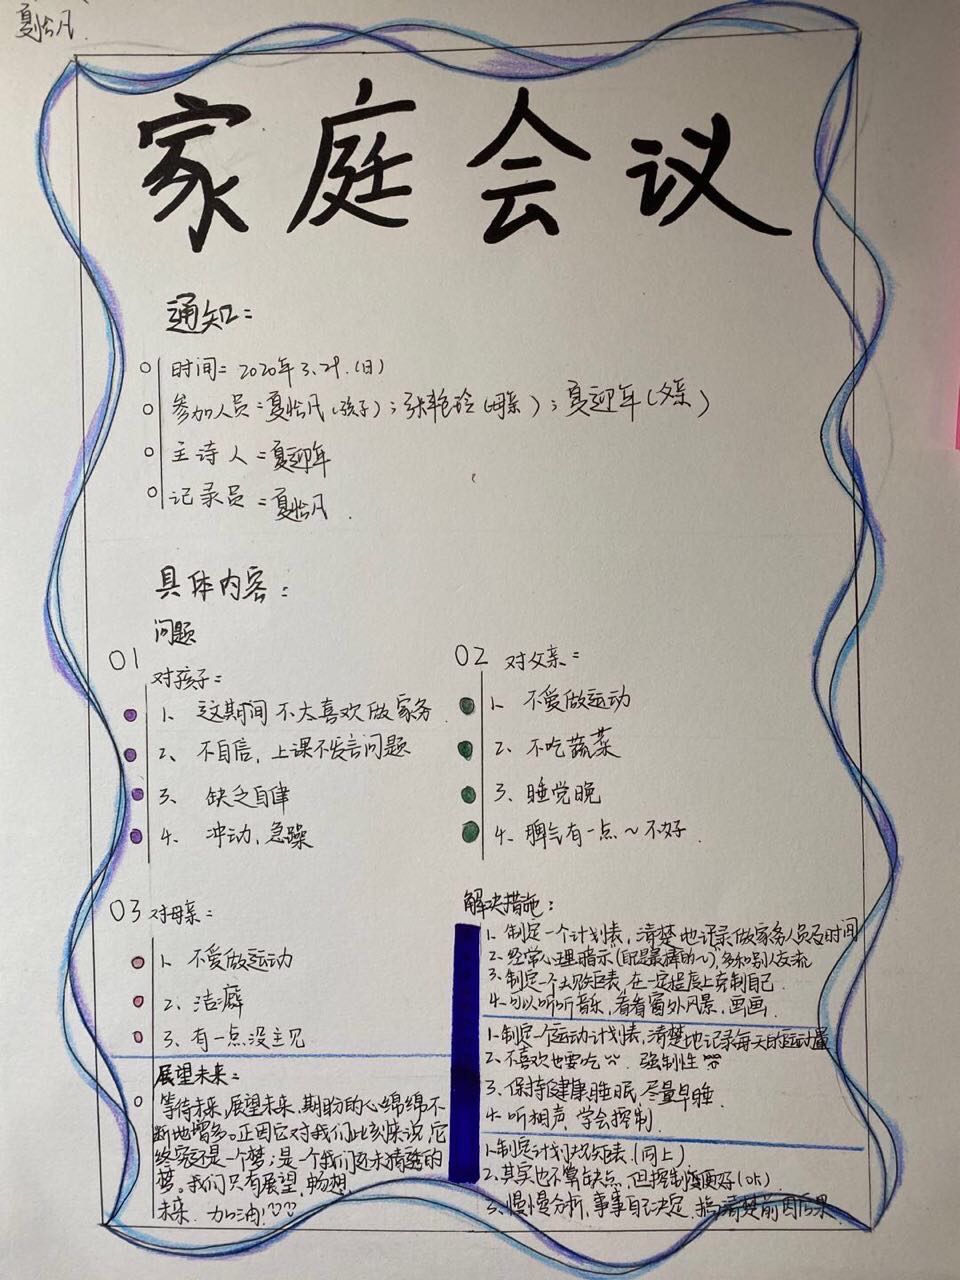 夏怡凡
家庭会议
通知:
时间: 2020年3.29.(日)
参加人员:夏怡凡(孩子);张艳玲(母亲);夏迎年(父亲)
主诗人:夏迎年
记录员:夏怡凡.
具体内容:
问题
01 对孩子:
1、这期间不太喜欢做家务
2、不自信,上课不发言问题
3、缺乏自律
4、冲动,急躁
02 对父亲:
1、不爱做运动
2、不吃蔬菜
3、睡觉晚
4、脾气有一点~不好.
03 对母亲:
1、不爱做运动
2、洁癖
3、有一点没主见
展望未来:
等待未来,展望未来,期盼的心绵绵不
断地增多。正因它对我们此刻来说,它
终究还是一个梦;是一个我们还未清楚的
梦。我们只有展望,畅想
未来.加油!
解决措施:
1、制定一个计划表,清楚地记录做家务人员及时间
2、经常心理暗示(自己是最棒的~),多和别人交流
3、制定一个计划表,在一定程度上克制自己.
4、可以听听音乐,看看窗外风景,画画.
1、制定一个运动计划表,清楚地记录每天的运动量
2、不喜欢也要吃 强制性
3、保持健康睡眠,尽量早睡.
4、听相声,学会控制.
1、制定计划表.(同上)
2、其实也不算缺点,但控制
3、慢慢分析,事事自己决定,搞清楚前因后果.